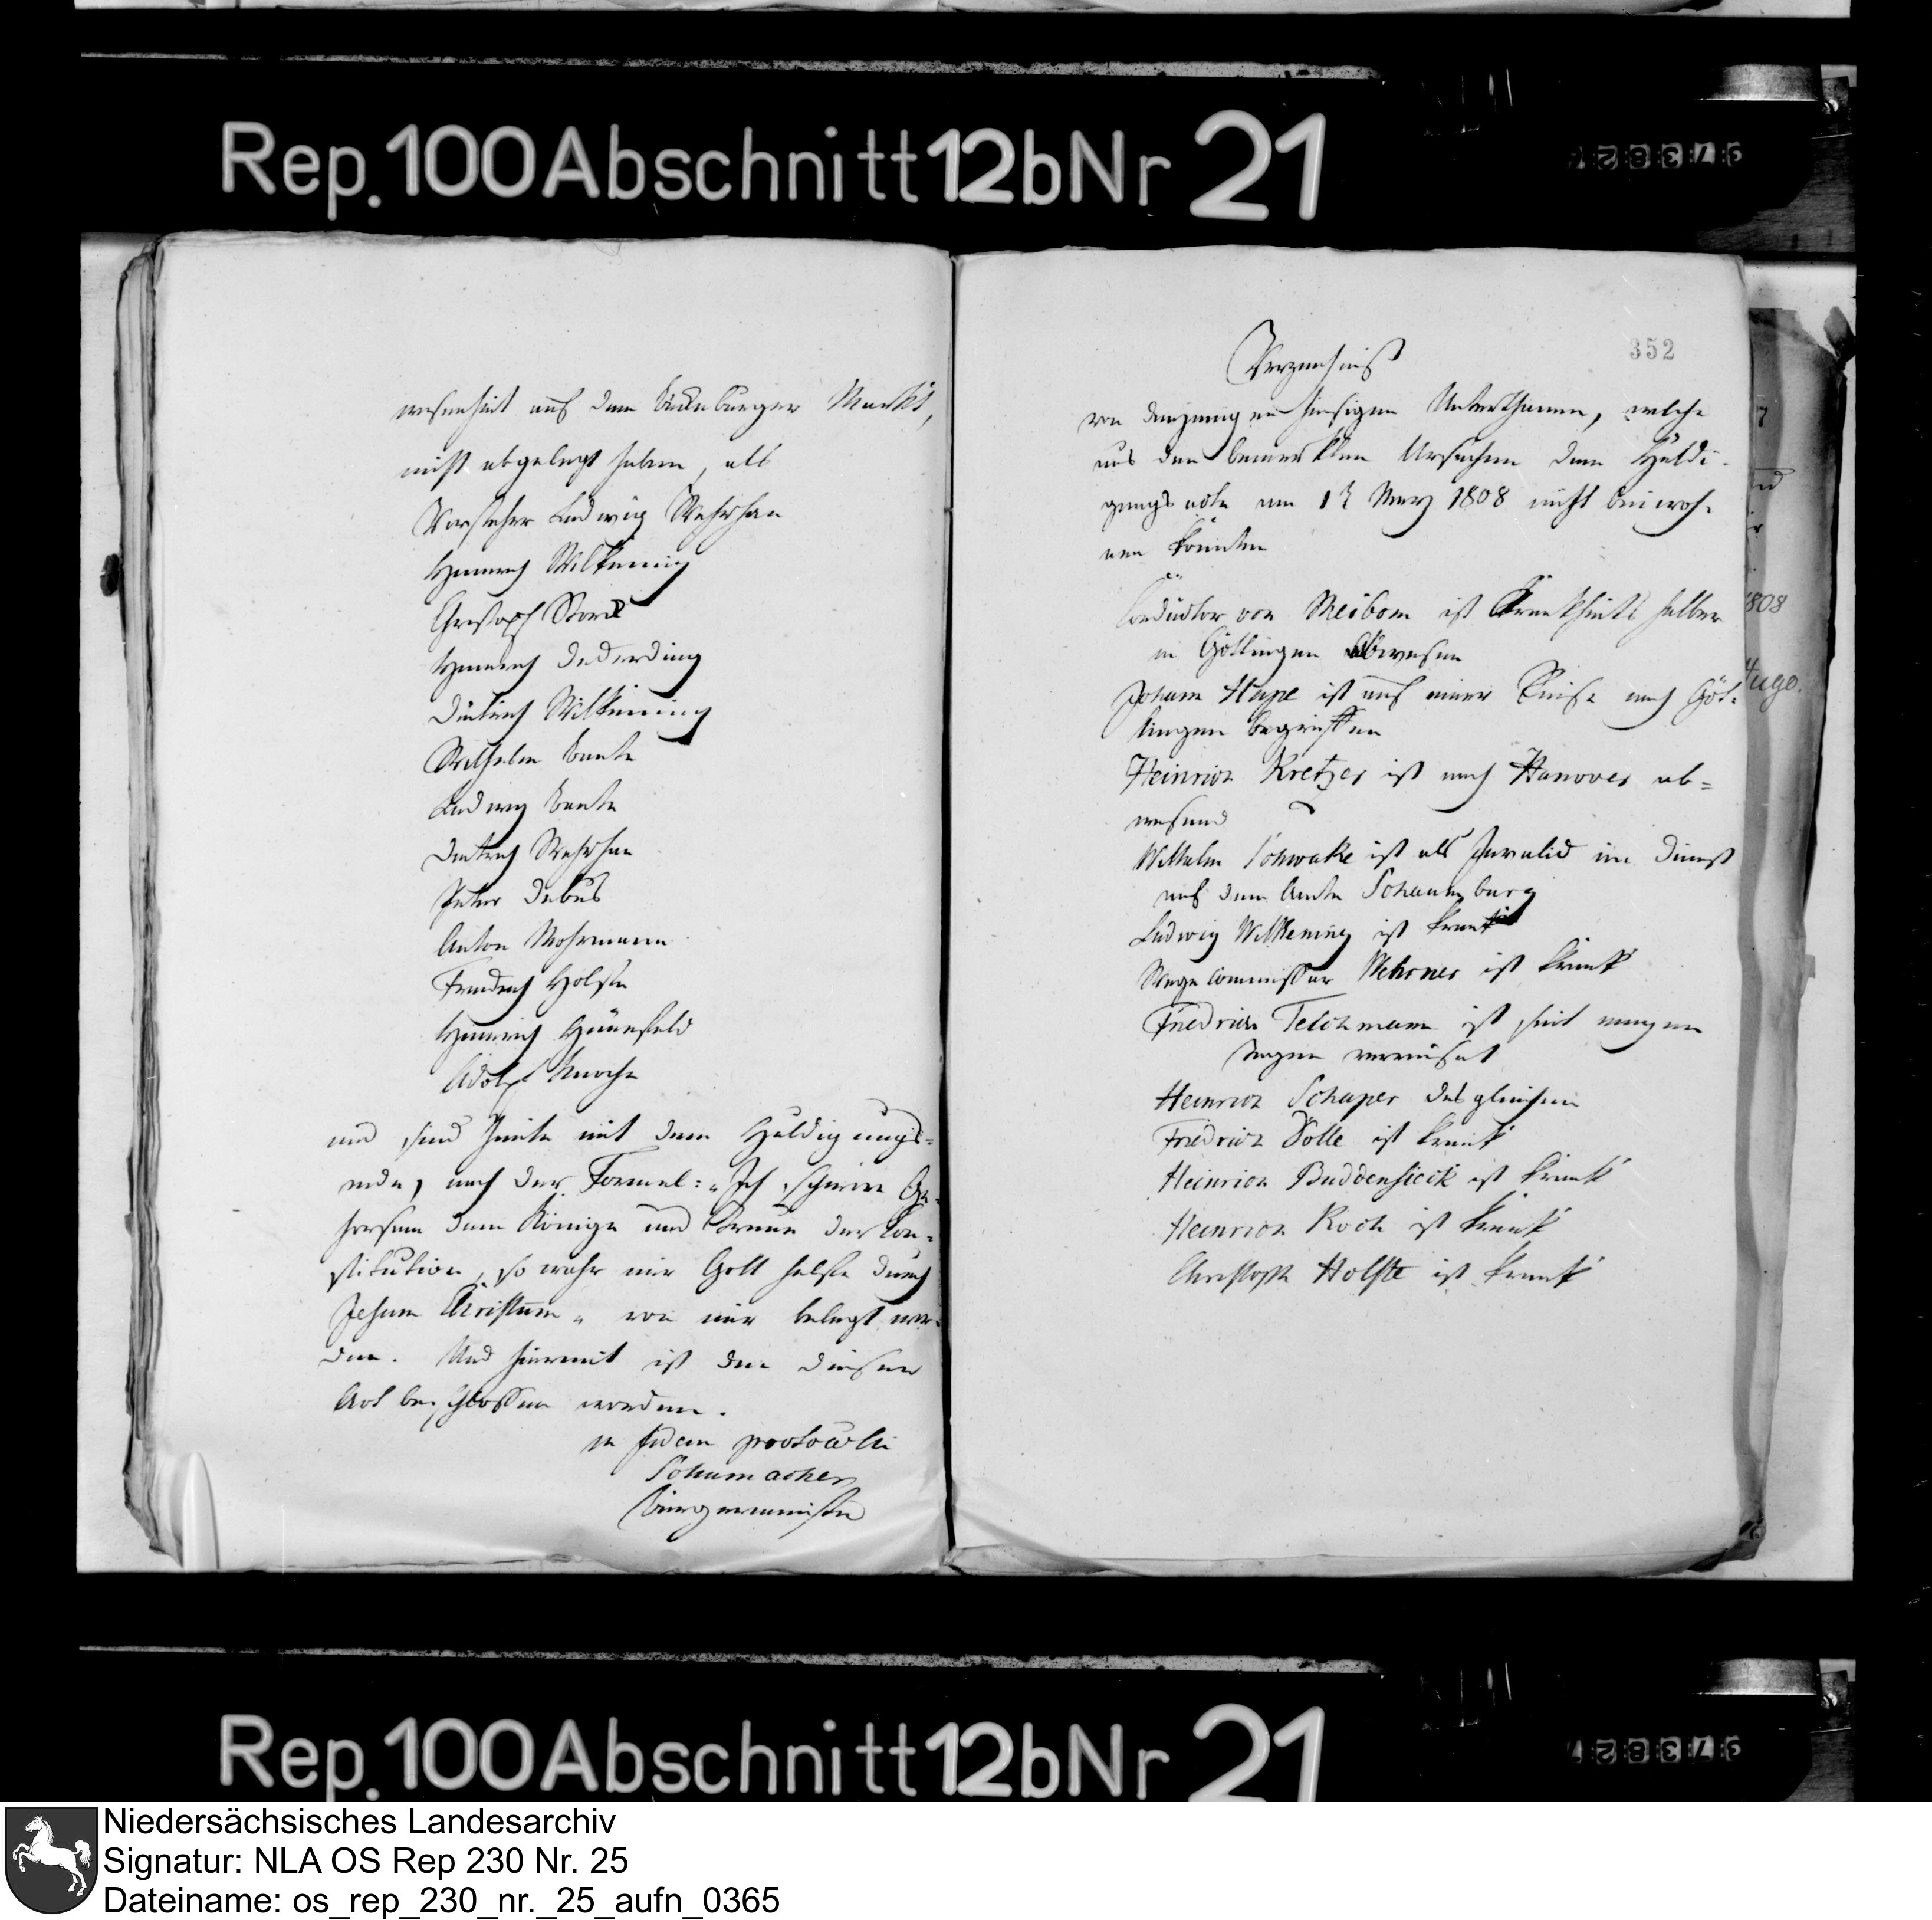 Rep. 100 Abschnitt 12b Nr 21
wesenheit auf dem Markt,
nicht abgelegt haben, als
Vorsteher Ludwig Wehrhan
Heinrich Wilkening
Christoph
Heinrich Dederding
Dietrich Wilkening
Wilhelm Bente
Ludwig Bente
Dietrich Wehrhan
Peter Debus
Anton Mohrmann
Friedrich Holste
Heinrich Hünefeld
Adolph Knoche
und sind heute mit dem Huldigungs-
eide, nach der Formel: „Ich schwöre Ge-
horsam dem Könige und Treue der Con-
stitution, so wahr mir Gott helfe durch
Jesum Christum„ von mir belegt wor-
den. Und hiermit ist den dieser
Act beschlossen worden.
in fidem protocolli
Schumacher
Bürgermeister
352
Verzeichniß
von denjenigen hiesigen Unterthanen, welche
aus den bemerkten Ursachen dem Huldi-
gungs acte am Merz 1808 nicht beiwoh-
nen konnten
von Meibom ist Krankheits halber
in Göttingen Abwesen
Johann Hupe ist auf einer Reise nach Göt-
tingen begriffen
Heinrich Kretzer ist nach Hanover ab=
wesend
Wilhelm Schwake ist als Invalid im Dienst
auf dem Amte Schaumburg
Ludwig Wilkening ist krank
Wege Commissar Wehrner ist krank
Friedrich Teichmann ist seit einigen
Tagen verreiset
Heinrich Schaper desgleichen
Friedrich Bölle ist krank
Heinrich Buddensieck ist krank
Heinrich Koch ist krank
Christoph Holste ist krank
808
Rep. 100 Abschnitt 12b Nr 21
Niedersächsisches Landesarchiv
Signatur: NLA OS Rep 230 Nr. 25
Dateiname: os_rep_230_nr._25_aufn_0365